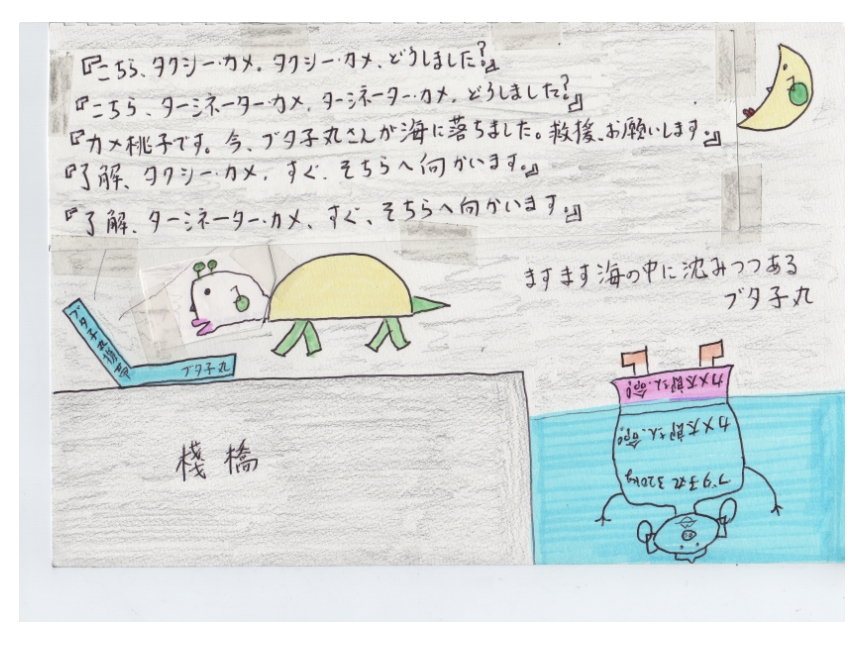 『こちら、タクシー・カメ。タクシー・カメ、どうしました?』
『こちら、ターミネーター・カメ。ターミネーター・カメ、どうしました?』
『カメ桃子です。今、ブタ子丸さんが海に落ちました。救援、お願いします。』
『了解、タクシー・カメ、すぐ、そちらへ向かいます。』
『了解、ターミネーター・カメ、すぐ、そちらへ向かいます。』
ますます海の中に沈みつつある
ブタ子丸
ブタ子丸携帯
ブタ子丸
棧橋
カメ太郎さん、命?
カメ太郎さん、命?
ブタ子丸 320kg